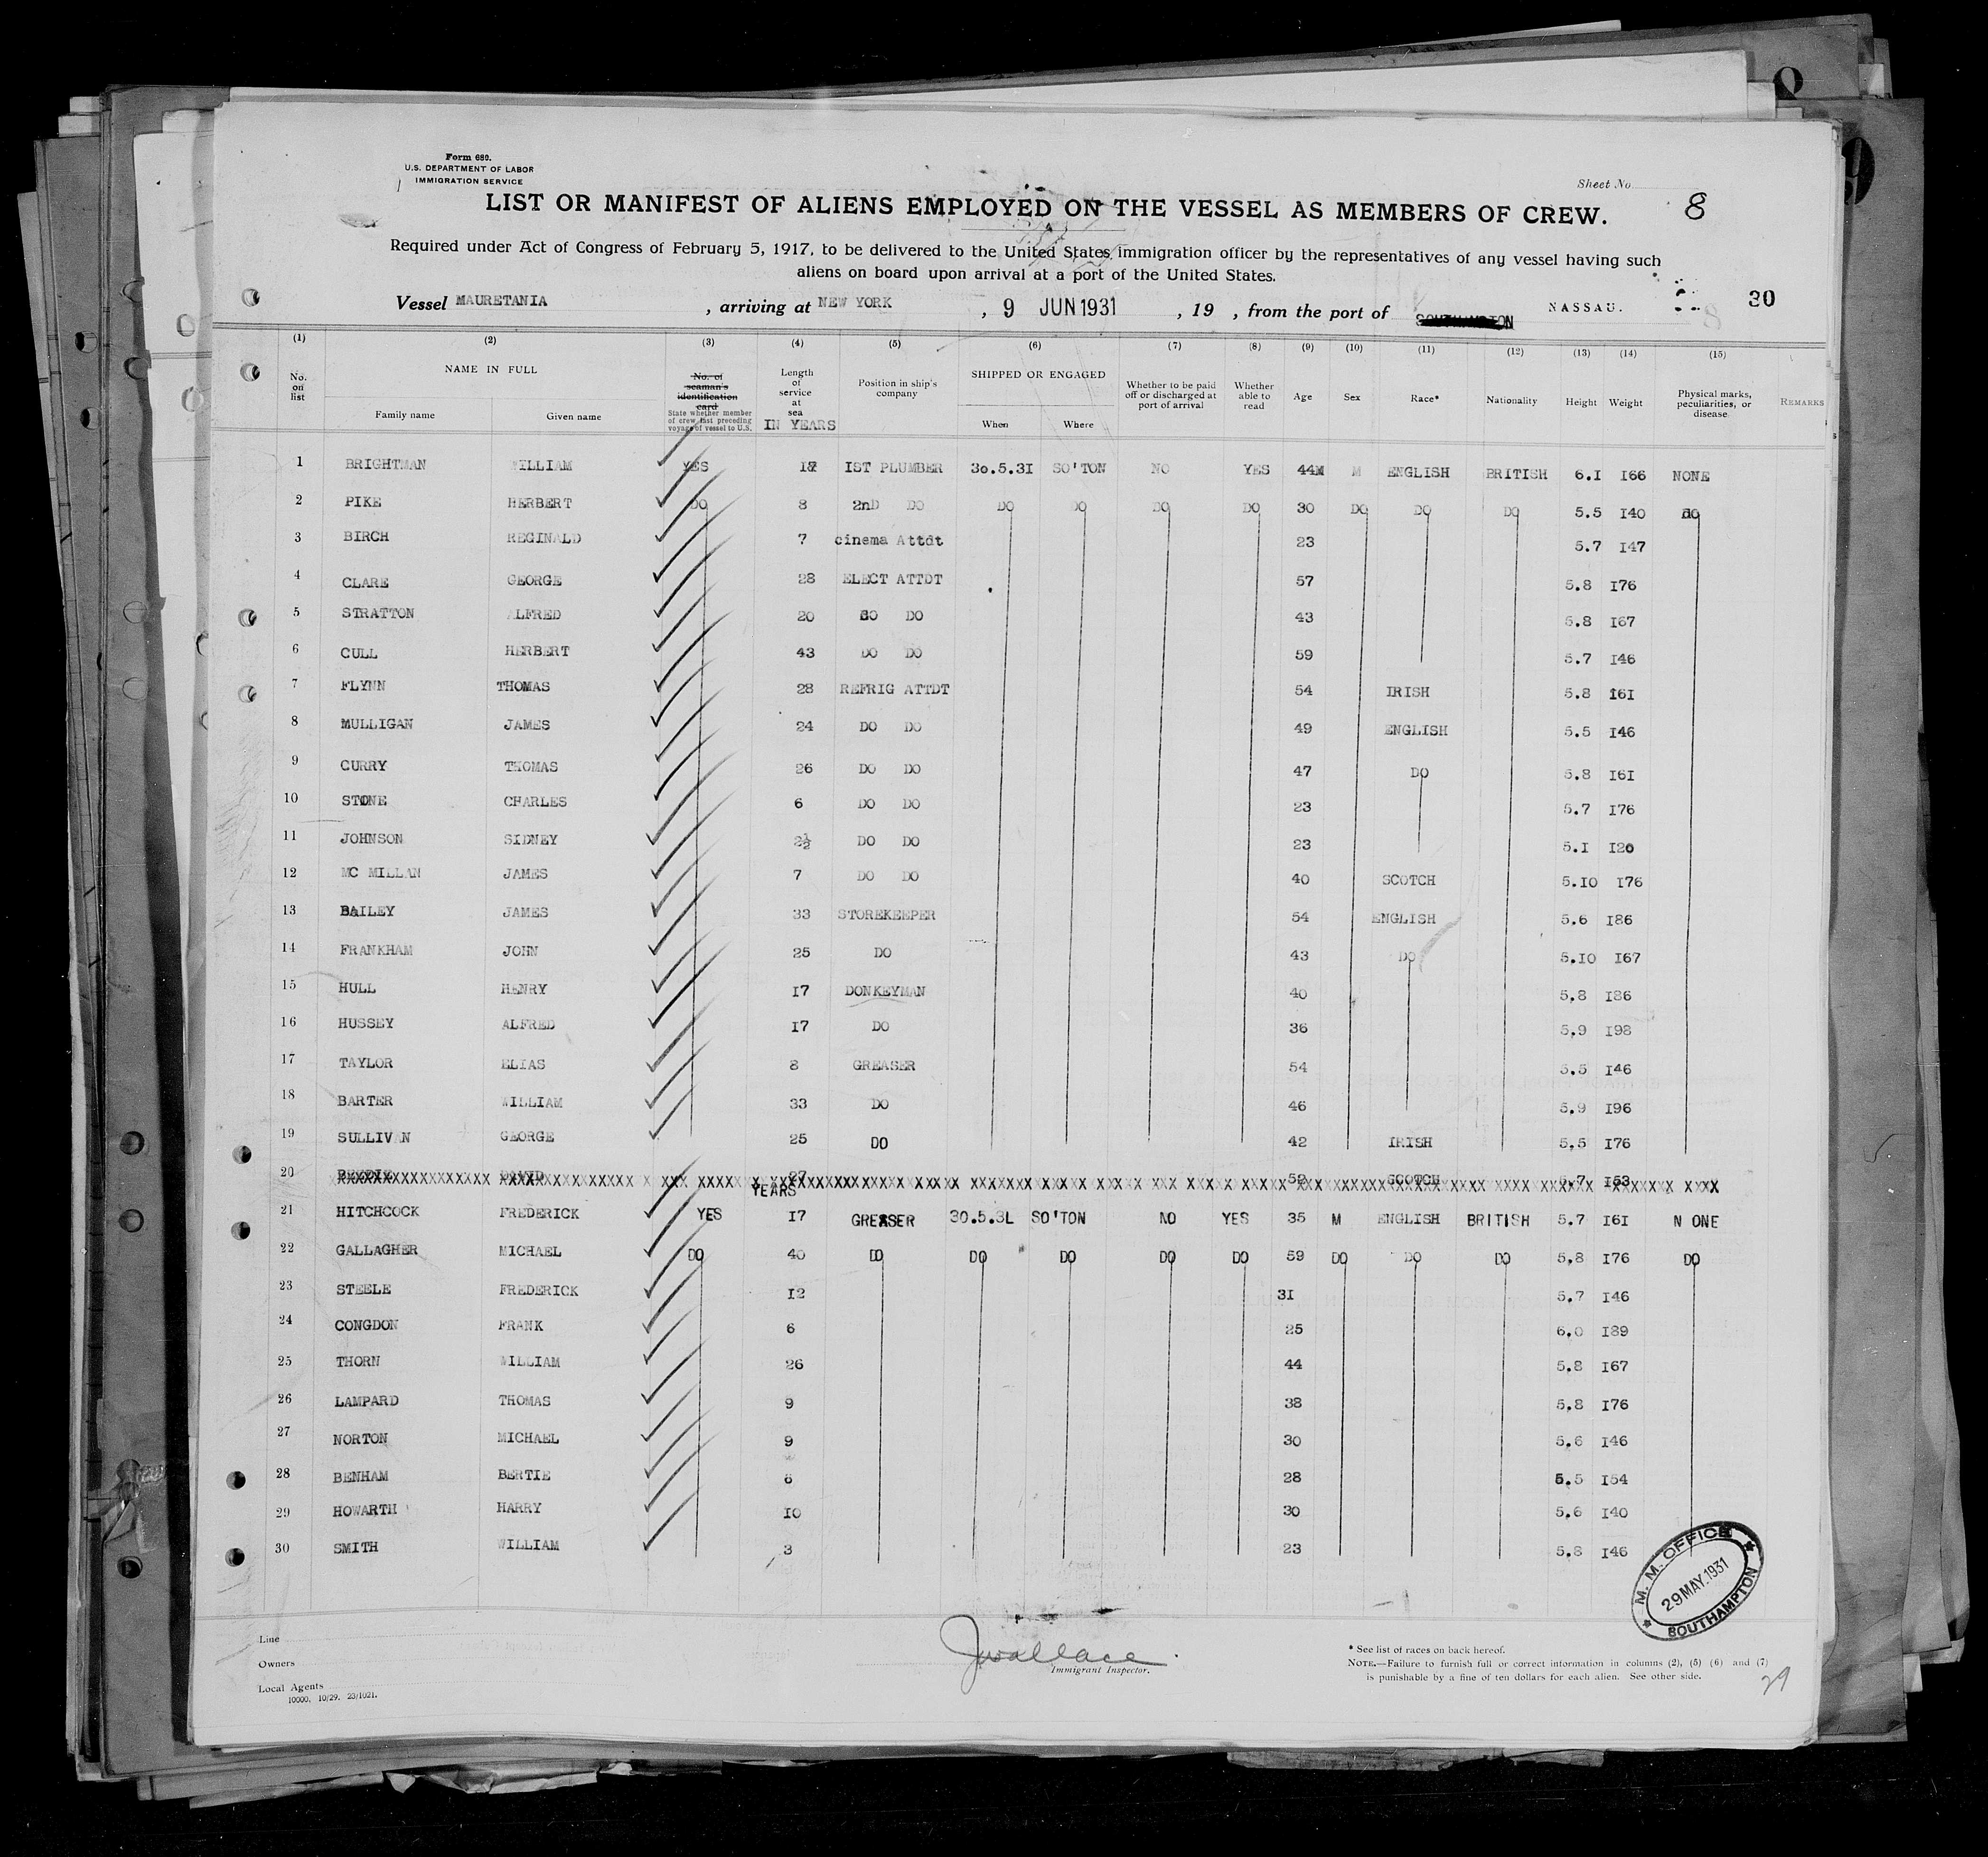 Form 680.
U.S. DEPARTMENT OF LABOR
IMMIGRATION SERVICE
Sheet No.
LIST OR MANIFEST OF ALIENS EMPLOYED ON THE VESSEL AS MEMBERS OF CREW. 8
Required under Act of Congress of February 5, 1917, to be delivered to the United States immigration officer by the representatives of any vessel having such
aliens on board upon arrival at a port of the United States.
Vessel MAURETANIA , arriving at NEW YORK , 9 JUN 1931 , 19 , from the port of NASSAU. 30
(1) (2) (3) (4) (5) (6) (7) (8) (9) (10) (11) (12) (13) (14) (15)
No. on list NAME IN FULL Family name Given name No. of seaman's identification card State whether member of crew last preceding voyage of vessel to U.S. Length of service at sea IN YEARS Position in ship's company SHIPPED OR ENGAGED When Where Whether to be paid off or discharged at port of arrival Whether able to read Age Sex Race* Nationality Height Weight Physical marks, peculiarities, or disease REMARKS
1 BRIGHTMAN WILLIAM YES IST PLUMBER 30.5.3I SO'TON NO YES 44M M ENGLISH BRITISH 6.I I66 NONE
2 PIKE HERBERT DO 8 2nD DO DO DO DO DO 30 DO DO DO 5.5 I40 do
3 BIRCH REGINALD 7 cinema Attdt 23 5.7 I47
4 CLARE GEORGE 28 ELECT ATTDT 57 5.8 I76
5 STRATTON ALFRED 20 DO DO 43 5.8 I67
6 CULL HERBERT 43 DO DO 59 5.7 I46
7 FLYNN THOMAS 28 REFRIG ATTDT 54 IRISH 5.8 I6I
8 MULLIGAN JAMES 24 DO DO 49 ENGLISH 5.5 I46
9 CURRY THOMAS 26 DO DO 47 DO 5.8 I6I
10 STONE CHARLES 6 DO DO 23 5.7 I76
11 JOHNSON SIDNEY 2½ DO DO 23 5.I I20
12 MC MILLAN JAMES 7 DO DO 40 SCOTCH 5.IO I76
13 BAILEY JAMES 33 STOREKEEPER 54 ENGLISH 5.6 I86
14 FRANKHAM JOHN 25 DO 43 DO 5.IO I67
15 HULL HENRY I7 DONKEYMAN 40 5.8 I86
16 HUSSEY ALFRED I7 DO 36 5.9 I98
17 TAYLOR ELIAS 8 GREASER 54 5.5 I46
18 BARTER WILLIAM 33 DO 46 5.9 I96
19 SULLIVAN GEORGE 25 DO 42 IRISH 5.5 I76
20 DAVID 27 59 SCOTCH 5.7 I53
YEARS
21 HITCHCOCK FREDERICK YES I7 GREASER 30.5.3L SO'TON NO YES 35 M ENGLISH BRITISH 5.7 I6I N ONE
22 GALLAGHER MICHAEL DO 40 DO DO DO DO DO 59 DO DO DO 5.8 I76 DO
23 STEELE FREDERICK I2 3I 5.7 I46
24 CONGDON FRANK 6 25 6.0 I89
25 THORN WILLIAM 26 44 5.8 I67
26 LAMPARD THOMAS 9 38 5.8 I76
27 NORTON MICHAEL 9 30 5.6 I46
28 BENHAM BERTIE 6 28 5.5 I54
29 HOWARTH HARRY IO 30 5.6 I40
30 SMITH WILLIAM 3 23 5.8 I46
M. M. OFFICE
29 MAY. 1931
SOUTHAMPTON
Line
Owners
Local Agents
10000, 10/29. 23/1021.
JWallace
Immigrant Inspector.
* See list of races on back hereof.
NOTE.—Failure to furnish full or correct information in columns (2), (5) (6) and (7)
is punishable by a fine of ten dollars for each alien. See other side.
29